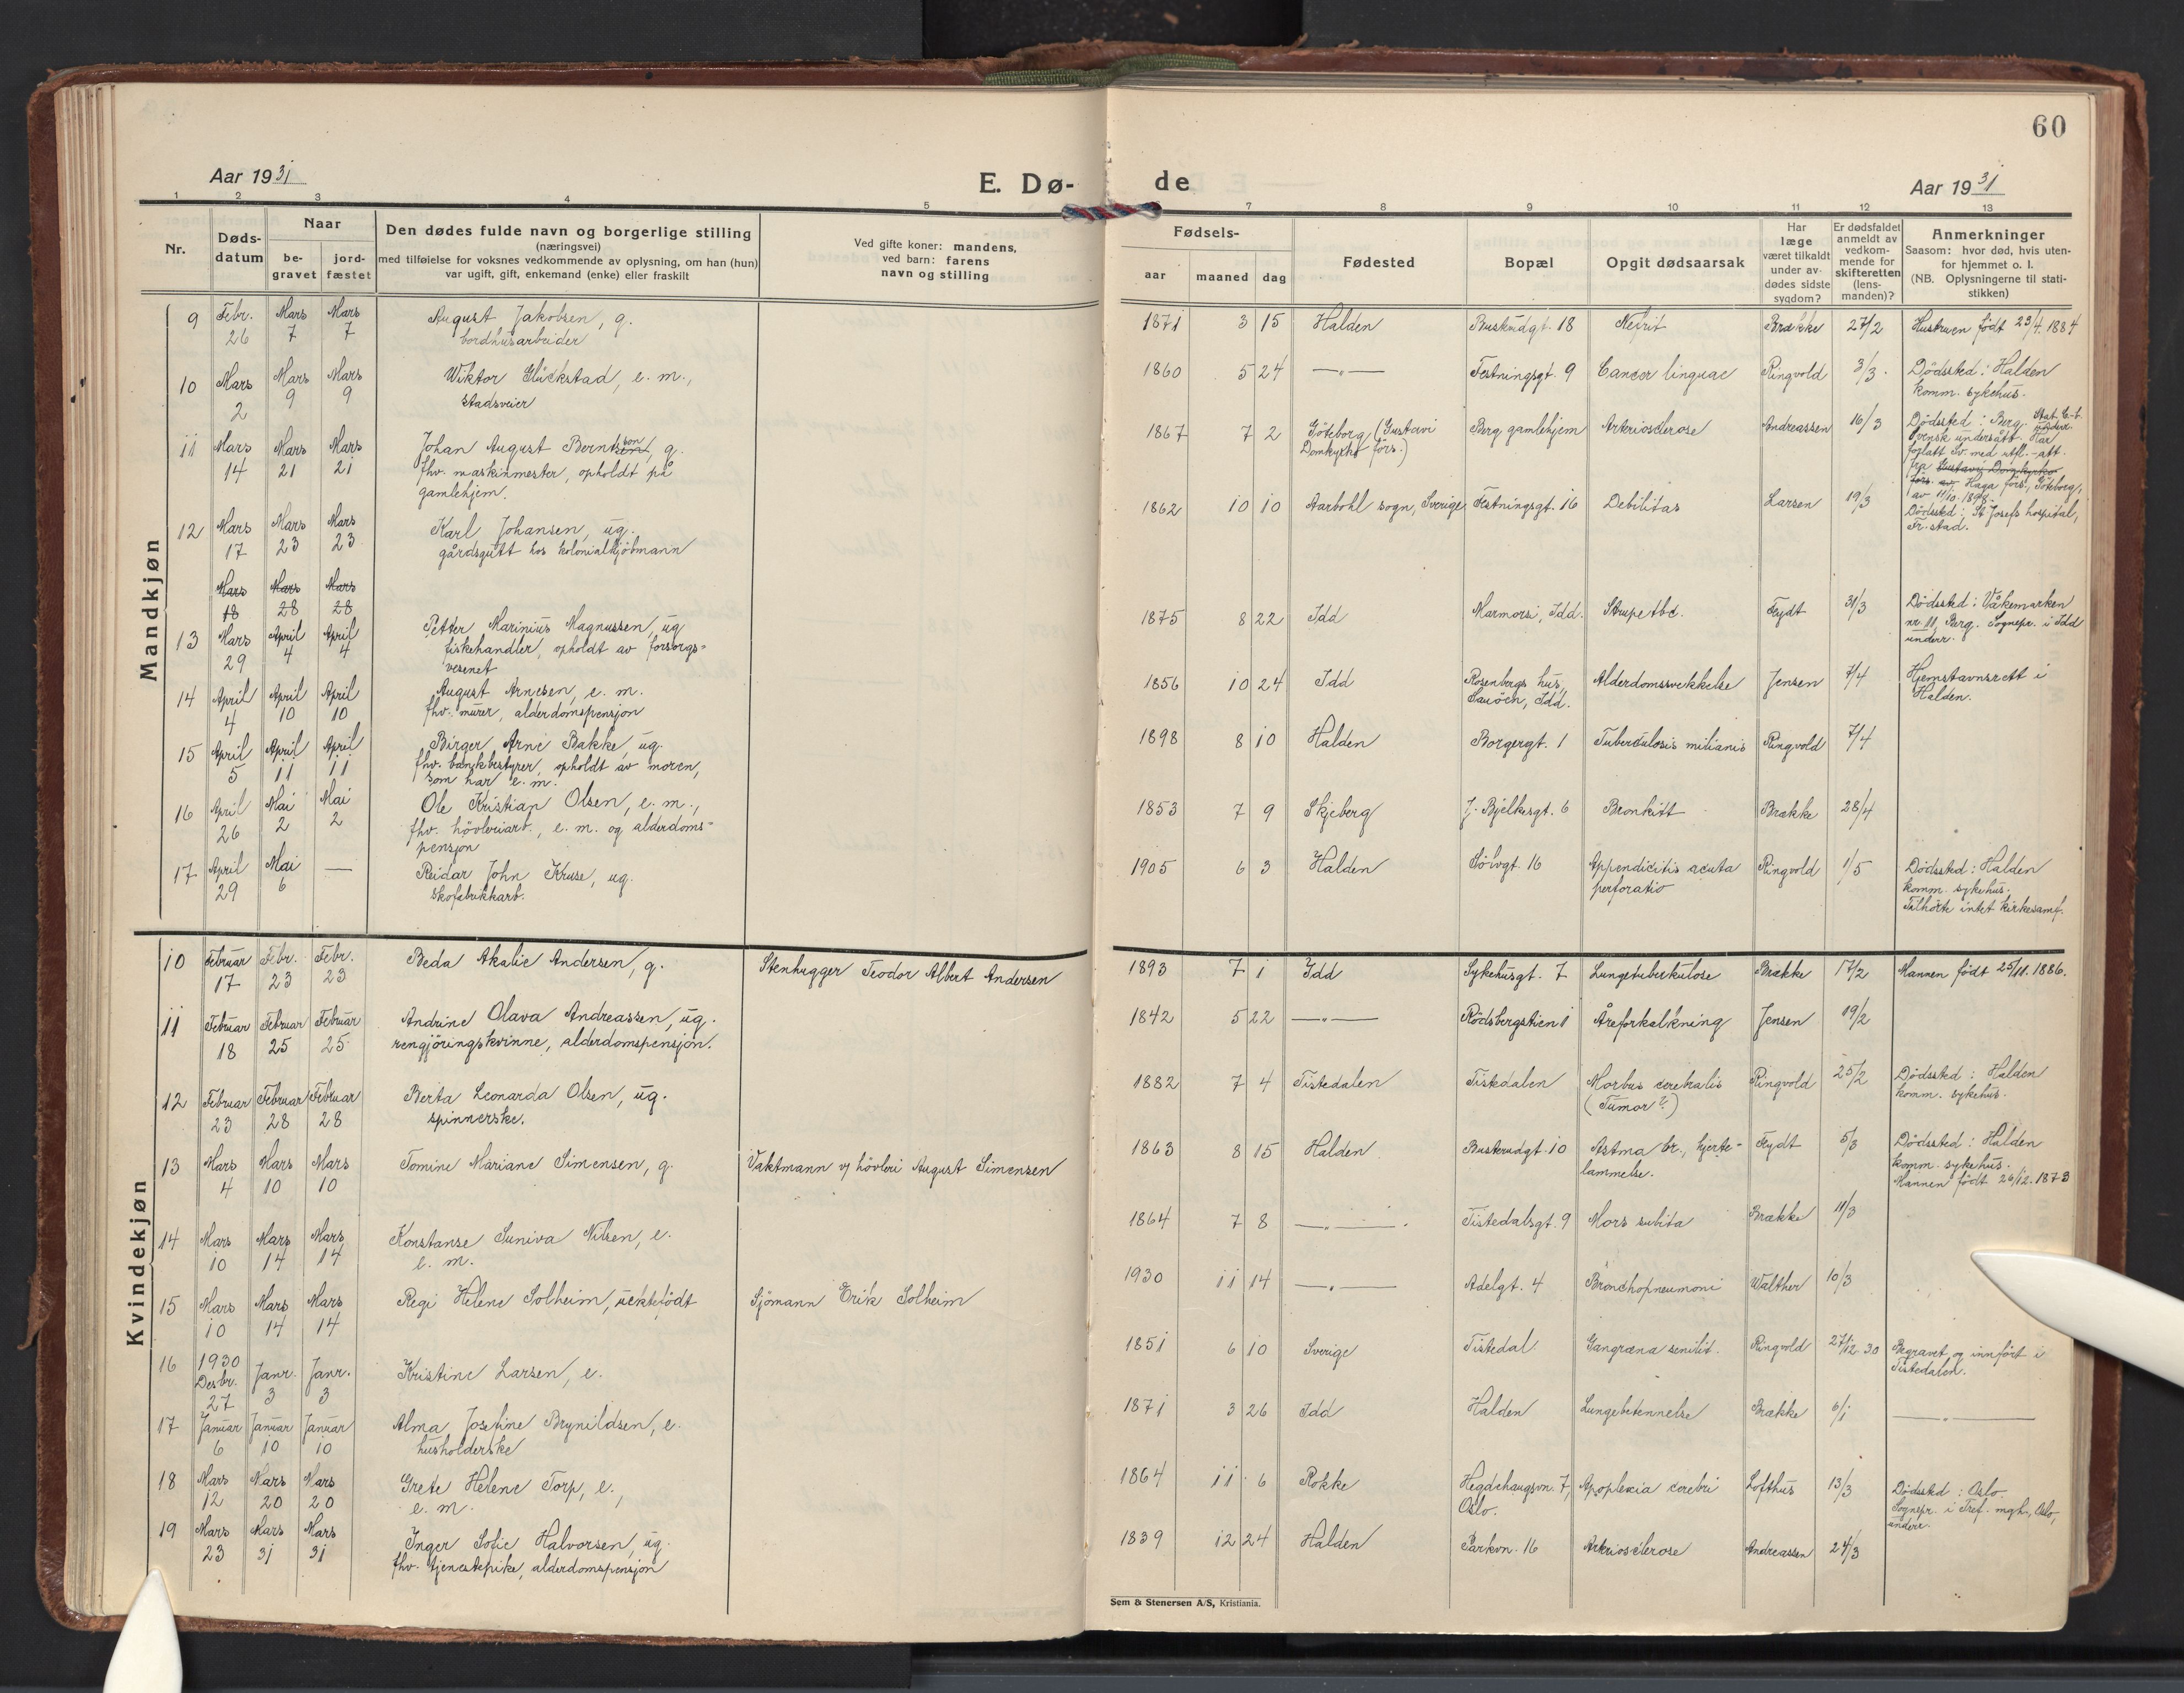 60
Aar 1931
E. Dø-
de
Aar 1931
1 2 3 4 5 7 8 9 10 11 12 13
Nr.
Døds-
datum
Naar
be-
gravet
jord-
fæstet
Den dødes fulde navn og borgerlige stilling
(næringsvei)
med tilføielse for voksnes vedkommende av oplysning, om han (hun)
var ugift, gift, enkemand (enke) eller fraskilt
Ved gifte koner: mandens,
ved barn: farens
navn og stilling
Fødsels-
aar maaned dag
Fødested
Bopæl
Opgit dødsaarsak
Har
læge
været tilkaldt
under av-
dødes sidste
sygdom?
Er dødsfaldet
anmeldt av
vedkom-
mende for
skifteretten
(lens-
manden)?
Anmerkninger
Saasom: hvor død, hvis uten-
for hjemmet o. l.
(NB. Oplysningerne til stati-
stikken)
Mandkjøn
9 Febr. Mars Mars August Jakobsen, g. 1871 3 15 Halden Buskudgt. 18 Nefrit Brække 27/2 Hustruen født 23/4. 1884
26 7 7 bordhusarbeider
10 Mars Mars Mars Wiktor Glückstad, e. m., 1860 5 24 —"— Festningsgt. 9 Cancer linguae Ringvold 3/3. Dödssted: Halden
2 9 9 stadsveier komm. sykehus.
11 Mars Mars Mars Johan August Berntsson, g. 1867 7 2 Göteborg (Gustavi Berg gamlehjem Arteriosclerose Andreassen 16/3 Dödssted: Berg.
14 21 21 fhv. maskinmester, opholdt på Domkyrko förs.) Svensk undersått. Har
gamlehjem. forlatt Sv. med utfl.-att.
fra Gustavi Domkyrko
förs. av Haga förs., Göteborg,
av 11/10. 1898.
12 Mars Mars Mars Karl Johansen, ug. 1862 10 10 Aarbohl sogn, Sverige Festningsgt. 16 Debilitas Larsen 19/3 Dödssted: St Josefs hospital,
17 23 23 gårdsgutt hos kolonialkjöbmann Fr.stad.
Mars Mars Mars
18 28 28
13 Mars April April Petter Marinius Magnussen, ug 1875 8 22 Idd Marmorsi, Idd. Strupetbc. Fydt 31/3 Dödssted: Våkemarken
29 4 4 fiskehandler, opholdt av forsorgs- nr. 11, Berg. Sognepr. i Idd
vesenet underr.
14 April April April August Arnesen, e. m. 1856 10 24 Idd Rosenbergs hus, Alderdomssvekkelse Jensen 7/4 Hjemstavnsrett i
4 10 10 fhv. murer, alderdomspensjon Sauöen, Idd. Halden.
15 April April April Birger Arne Bakke, ug. 1898 8 10 Halden Borgergt. 1 Tuberculosis miliaris Ringvold 7/4
5 11 11 fhv. bankbestyrer, opholdt av moren,
som har e. m.
16 April Mai Mai Ole Kristian Olsen, e. m., 1853 7 9 Skjeberg J. Bjelkesgt. 6 Bronkitt Brække 28/4
26 2 2 fhv. hövleriarb., e. m. og alderdoms-
pensjon
17 April Mai — Reidar John Kruse, ug. 1905 6 3 Halden Sölvgt. 16 Appendicitis acuta Ringvold 1/5 Dödssted: Halden
29 6 skofabrikkarb. perforatio komm. sykehus.
Tilhörte intet kirkesamf.
Kvindekjøn
10 Februar Febr. Febr. Beda Akalie Andersen, g. Stenhugger Teodor Albert Andersen 1893 7 1 Idd Sykehusgt. 7 Lungetuberkulose Brække 17/2 Mannen födt 25/11. 1886.
17 23 23
11 Februar Februar Februar Andrine Olava Andreassen, ug. 1842 5 22 —"— Rödsbergstien 1 Åreforkalkning Jensen 19/2
18 25 25 rengjöringskvinne, alderdomspensjon.
12 Februar Februar Februar Berta Leonarda Olsen, ug. 1882 7 4 Tistedalen Tistedalen Morbus cerebralis Ringvold 25/2 Dödssted: Halden
23 28 28 spinnerske. (Tumor?) komm. sykehus.
13 Mars Mars Mars Tomine Mariane Simensen, g. Vaktmann v/ hövleri August Simensen 1863 8 15 Halden Buskrudgt. 10 Astma br., hjerte- Fydt 5/3 Dödssted: Halden
4 10 10 lammelse. komm. sykehus.
Mannen födt 26/12. 1873
14 Mars Mars Mars Konstanse Suniva Nilsen, e. 1864 7 8 —"— Tistedalsgt. 9 Mors subita Brække 11/3
10 14 14 e. m.
15 Mars Mars Mars Regi Helene Solheim, uektefödt Sjömann Erik Solheim 1930 11 14 —"— Adelgt. 4 Bronchopneumoni Walther 10/3
10 14 14
16 1930 Desbr. Janr. Janr. Kristine Larsen, e. 1851 6 10 Sverige Tistedal Gangræna senilis. Ringvold 27/12 30 Begravet og innfört i
27 3 3 Tistedalen.
17 Januar Januar Januar Alma Josefine Brynildsen, e. 1871 3 26 Idd Halden Lungebetennelse Brække 6/1 —"—
6 10 10 husholderske
18 Mars Mars Mars Grete Helene Torp, e., 1864 11 6 Rokke Hegdehaugsvn. 7, Apoplexia cerebri Lofthus 13/3 Dödssted: Oslo.
12 20 20 e. m. Oslo. Sognepr. i Tref. mgh., Oslo,
underr.
19 Mars Mars Mars Inger Sofie Halvorsen, ug. 1839 12 24 Halden Parkvn. 16 Arteriosclerose Andreassen 24/3
23 31 31 fhv. tjenestepike, alderdomspensjon
Sem & Stenersen A/S, Kristiania.